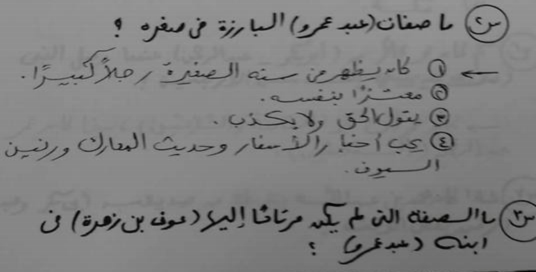 س٢ ما صفات (عبد عمرو) البارزة فى صغره ؟
← ① كان يظهر من سنه الصغيرة رجلاً كبيرًا.
② معتزًا بنفسه.
③ يقول الحق ولا يكذب.
④ يحب أخبار الأسفار وحديث المعارك ورنين
السيوف.
س٣ ما الصفة التى لم يكن مرتاحًا إليها (عوف بن زهرة) فى
ابنه (عبد عمرو) ؟